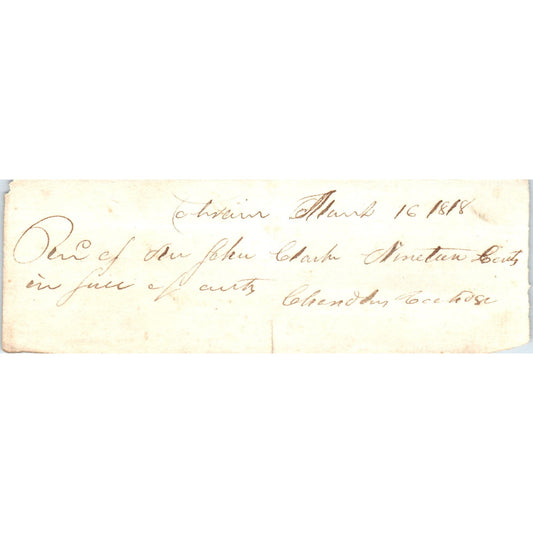 Colrain March 16 1818
Recd of Mr John Clark Nineteen Cents
in full of accts Chandler